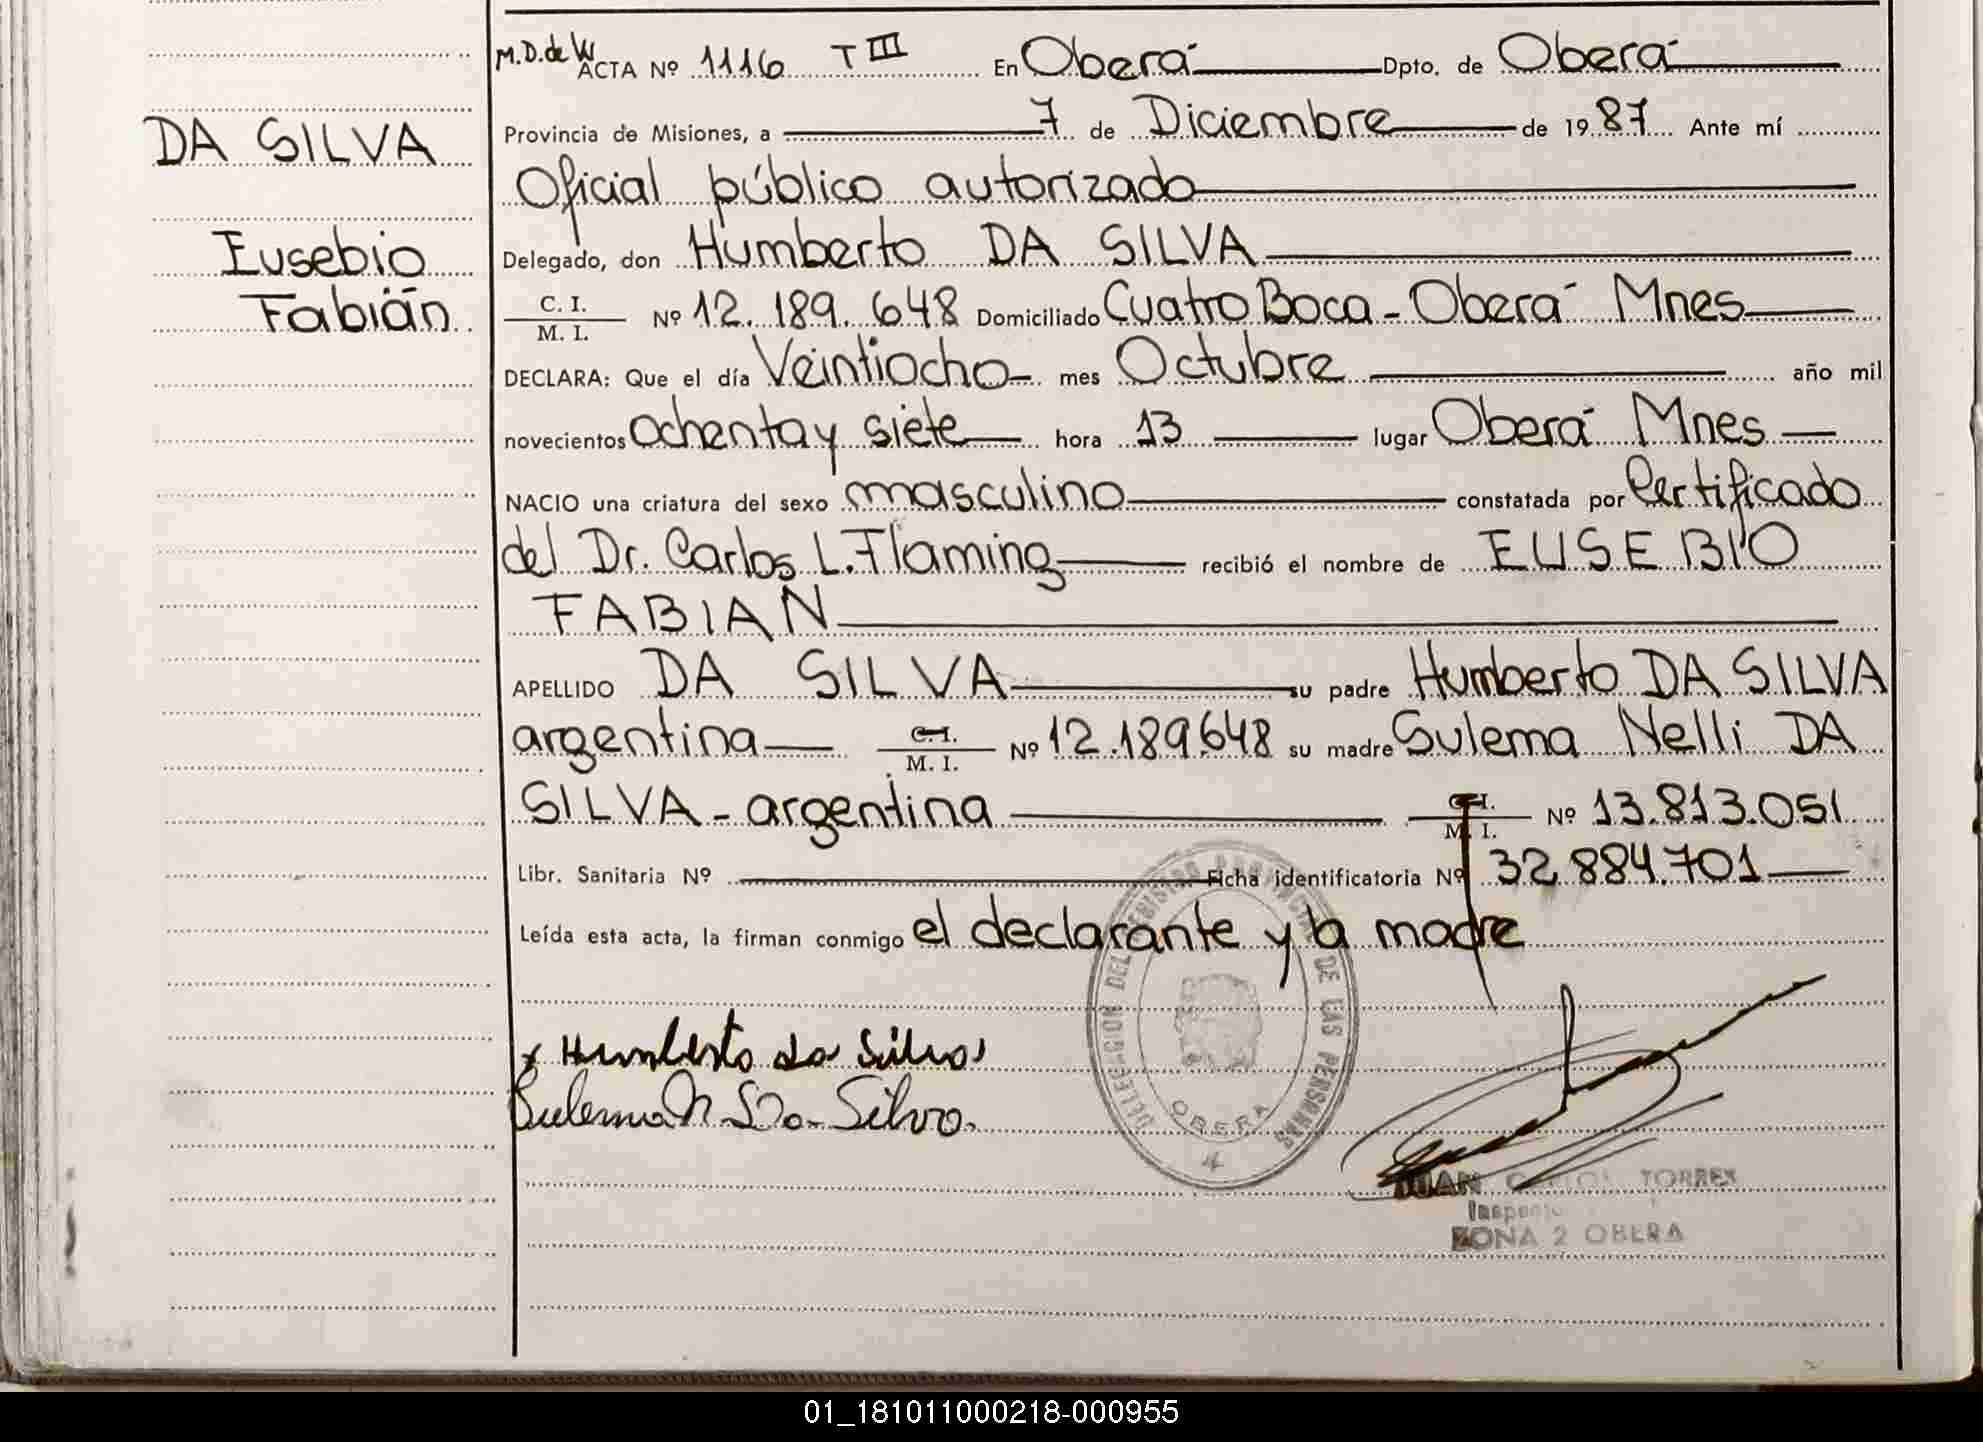 M.D.de W
ACTA Nº 1116 T III En Oberá Dpto. de Oberá
DA SILVA
Provincia de Misiones, a 7 de Diciembre de 1987 Ante mí
Oficial público autorizado
Eusebio
Delegado, don Humberto DA SILVA
Fabián
C. I.
M. I. Nº 12.189.648 Domiciliado Cuatro Boca - Oberá Mnes
DECLARA: Que el día Veintiocho mes Octubre año mil
novecientos ochenta y siete hora 13 lugar Oberá Mnes
NACIO una criatura del sexo masculino constatada por Certificado
del Dr. Carlos L. Flaming recibió el nombre de EUSEBIO
FABIAN
APELLIDO DA SILVA su padre Humberto DA SILVA
argentina C. I.
M. I. Nº 12.189.648 su madre Sulema Nelli DA
SILVA - argentina C. I.
M. I. Nº 13.813.051
Libr. Sanitaria Nº Ficha identificatoria Nº 32.884.701
Leída esta acta, la firman conmigo el declarante y la madre
DELEGACION DEL REGISTRO PROVINCIAL DE LAS PERSONAS
OBERA
x Humberto da Silva
Sulema N Da Silva.
JUAN CARLOS TORRES
ZONA 2 OBERA
01_181011000218-000955